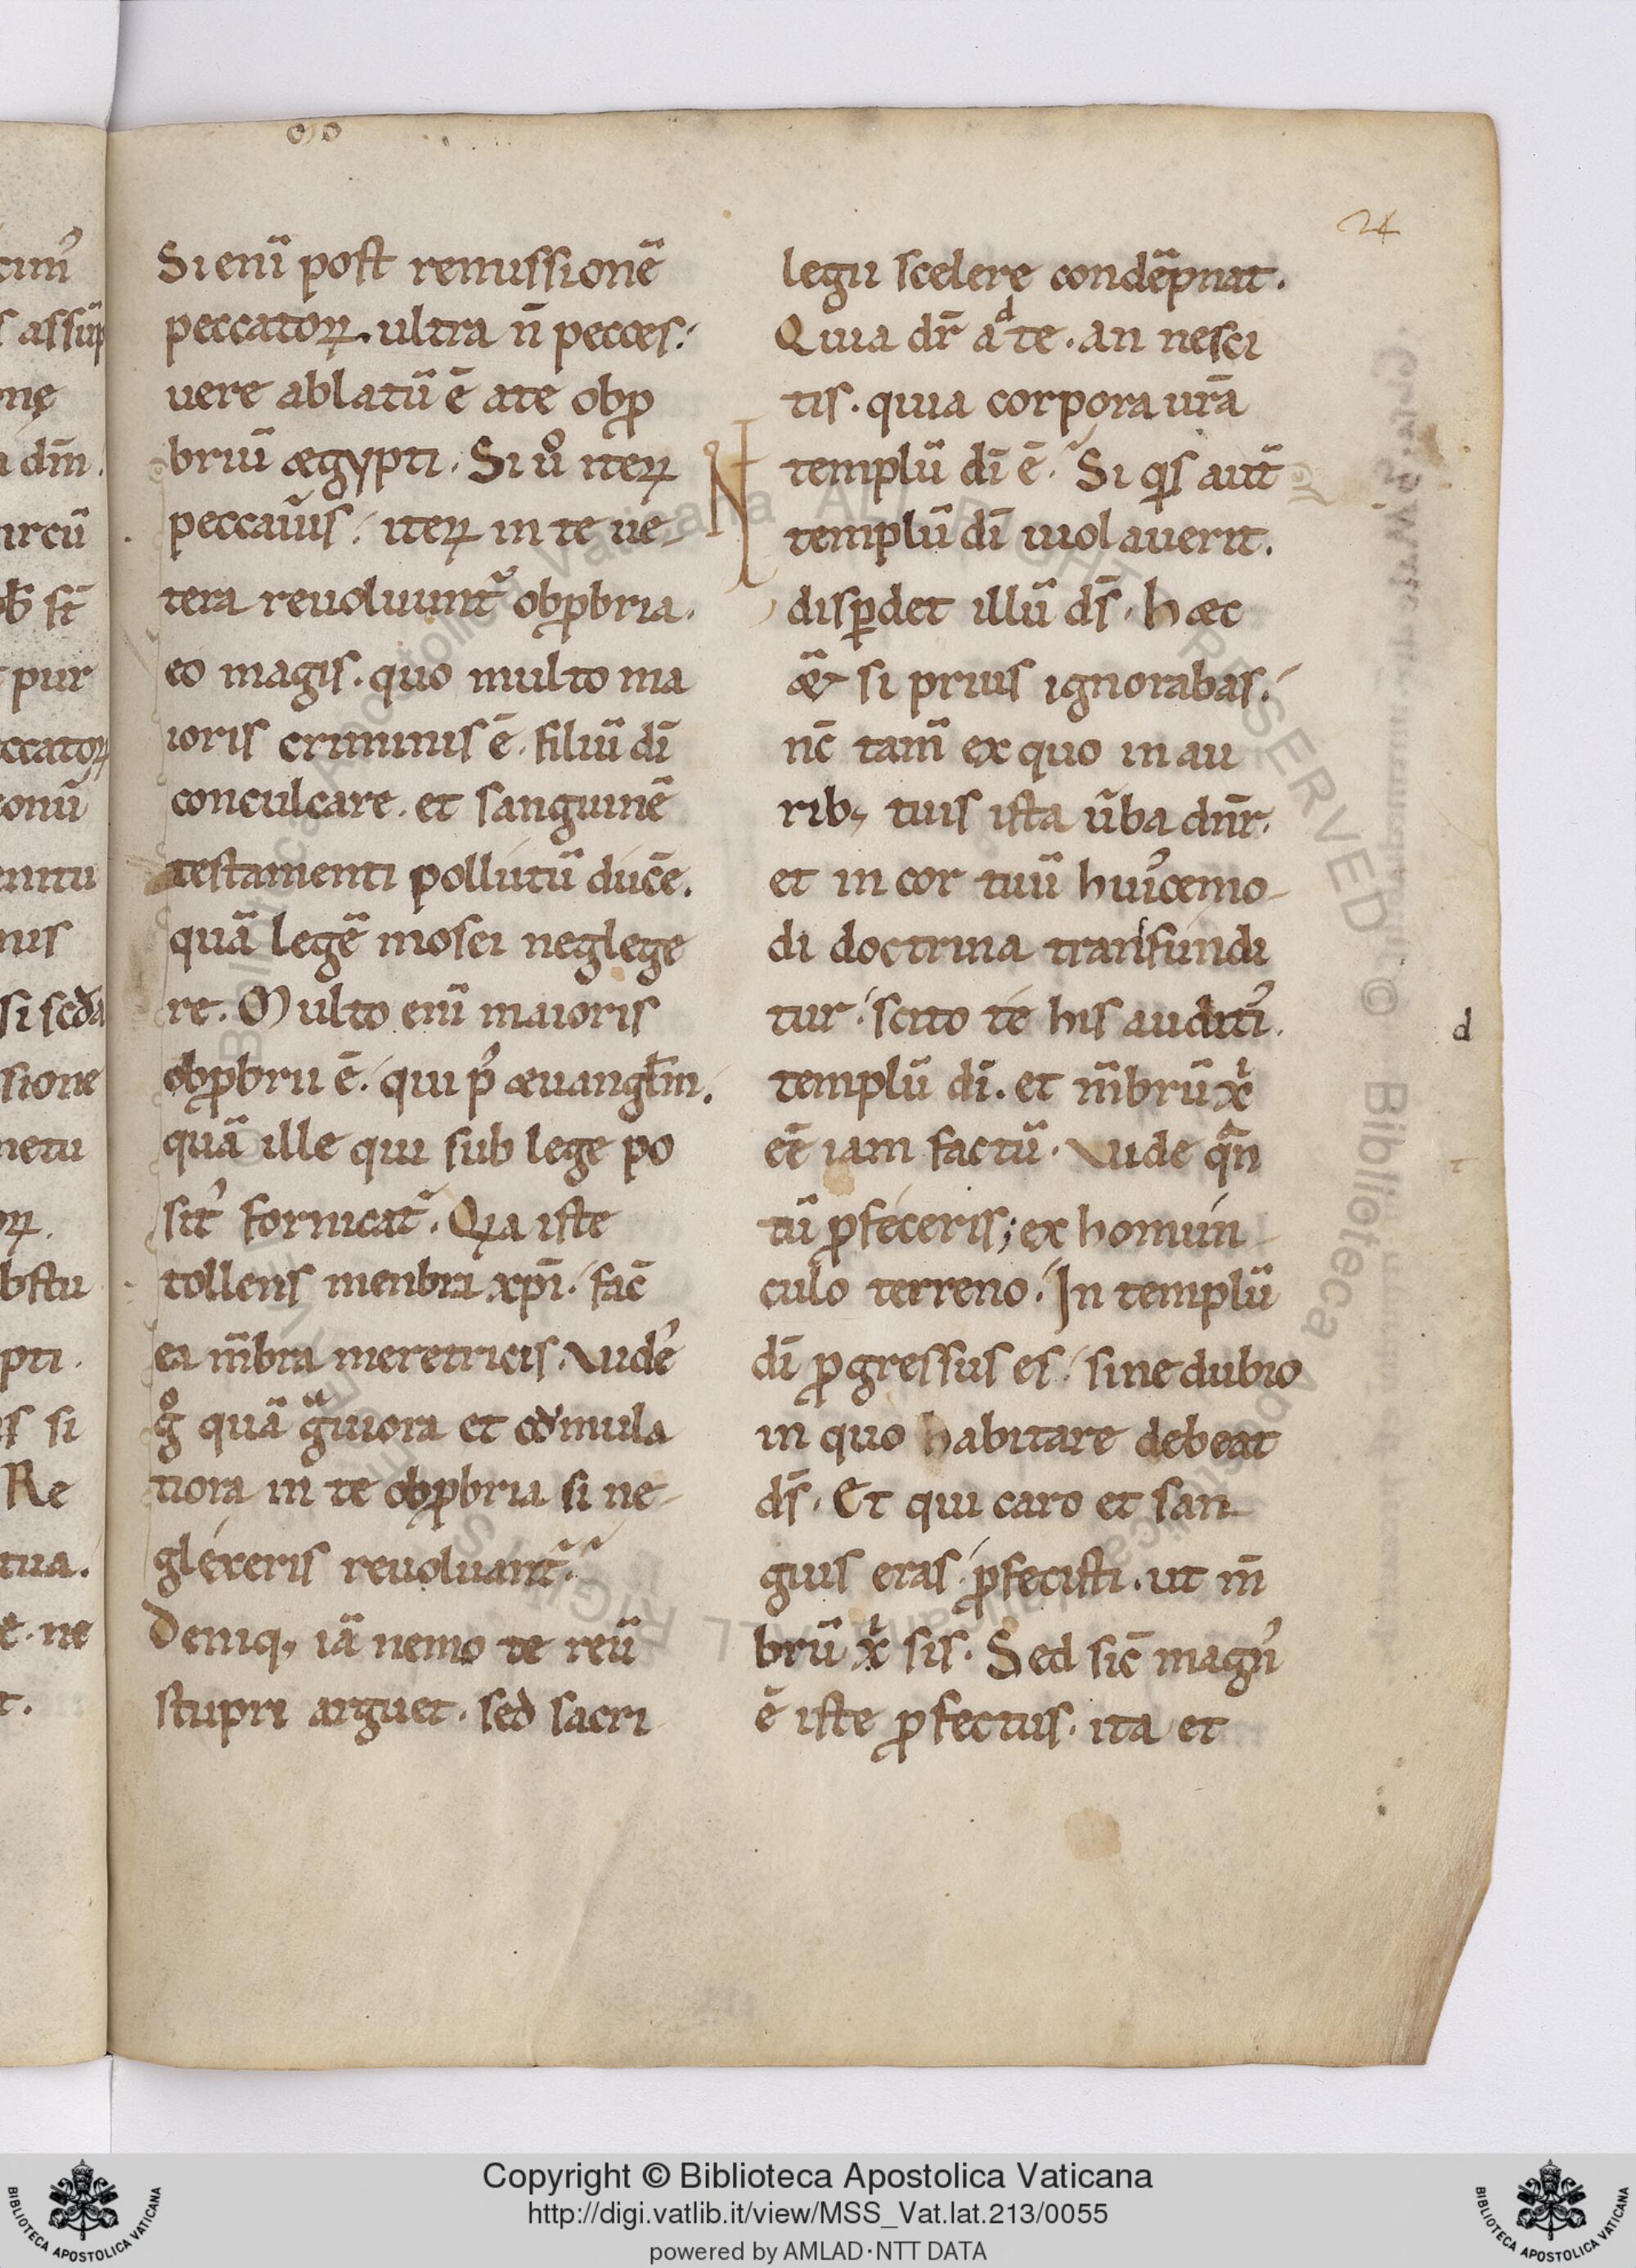 24
Si eni̅ post remissione̅
peccatoꝝ. ultra n̅ pecces.
uere ablatu̅ e̅ ate obꝓ
briu̅ ægypti. Si ůo iteꝝ
peccaueris. iteꝝ in te ue-
tera reuoluunt᷑ obꝓbria.
eo magis. quo multo ma
ioris criminis e̅. filiu̅ di̅
conculcare. et sanguine̅
testamenti pollutu̅ duce̅.
qua̅ lege̅ mosei neglege
re. Multo eni̅ maioris
obꝓbrii e̅. qui p᾿ æuangłm.
qua̅ ille qui sub lege po
sit᾿ fornicat᷑. Qꝛa iste
tollens menbra xp̅i. fac̅
ea m̅bra meretricis. Vide᾿
gͦ qua̅ gͣuiora et cumula
tiora in te obꝓbria si ne-
glexeris reuoluant᷑.
Deniq; ia̅ nemo te reu̅
stupri arguet. sed sacri
legii scelere conde̅pnat.
Quia dr̅ a d te. an nesci
tis. quia corpora ur̅a
templu̅ di̅ e̅. Si qͥs aut̅
templu̅ di̅ uiolauerit.
disꝑdet illu̅ ds̅. hæc
æ̅t si prius ignorabas.
nc̅ tam̅ ex quo in au
rib; tuis ista u̅ba dnr̅.
et in cor tuu̅ hui᾿cemo-
di doctrina transfundi
tur. scito te his auditi᾿.
templu̅ di̅. et m̅bru̅ xͥ
ee̅ iam factu̅. Vide qͣn
tu̅ ꝓfeceris; ex homun-
culo terreno. In templu̅
di̅ ꝓgressus es. sine dubio
in quo habitare debeat
ds̅. Et qui caro et san-
guis eras. ꝓfecisti. ut m̅
bru̅ xͥ sis. Sed sic̅ magn᾿
e̅ iste ꝓfectus. ita et
N
d
Copyright © Biblioteca Apostolica Vaticana
http://digi.vatlib.it/view/MSS_Vat.lat.213/0055
powered by AMLAD·NTT DATA
BIBLIOTECA APOSTOLICA VATICANA
BIBLIOTECA APOSTOLICA VATICANA